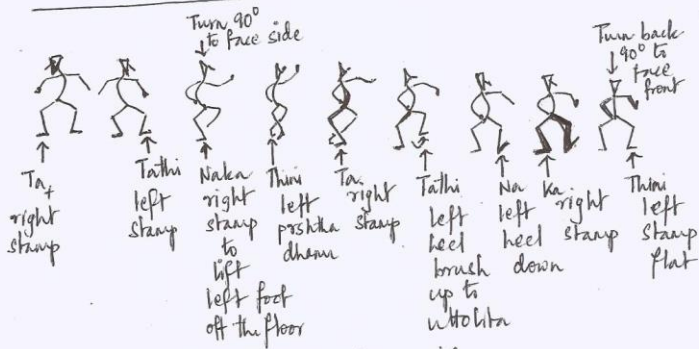 Turn 90°
to face side
Turn back
90° to
face
front
Ta
right
stamp
Tathi
left
stamp
Naka
right
stamp
to
lift
left foot
off the floor
Thini
left
prshtha
dhanu
Ta
right
stamp
Tathi
left
heel
brush
up to
uttolita
Na
left
heel
down
Ka
right
stamp
Thini
left
stamp
flat